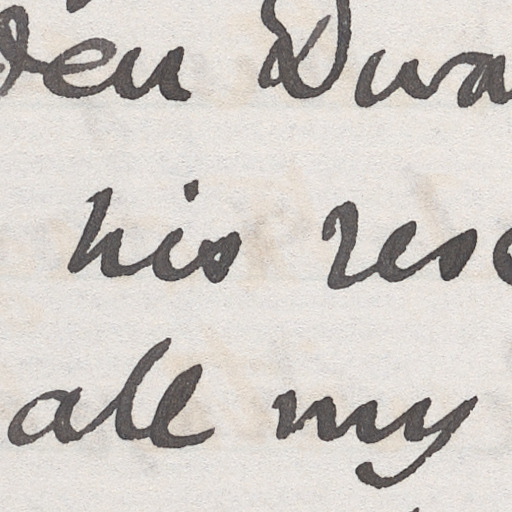 den Dwa
his reso
all my